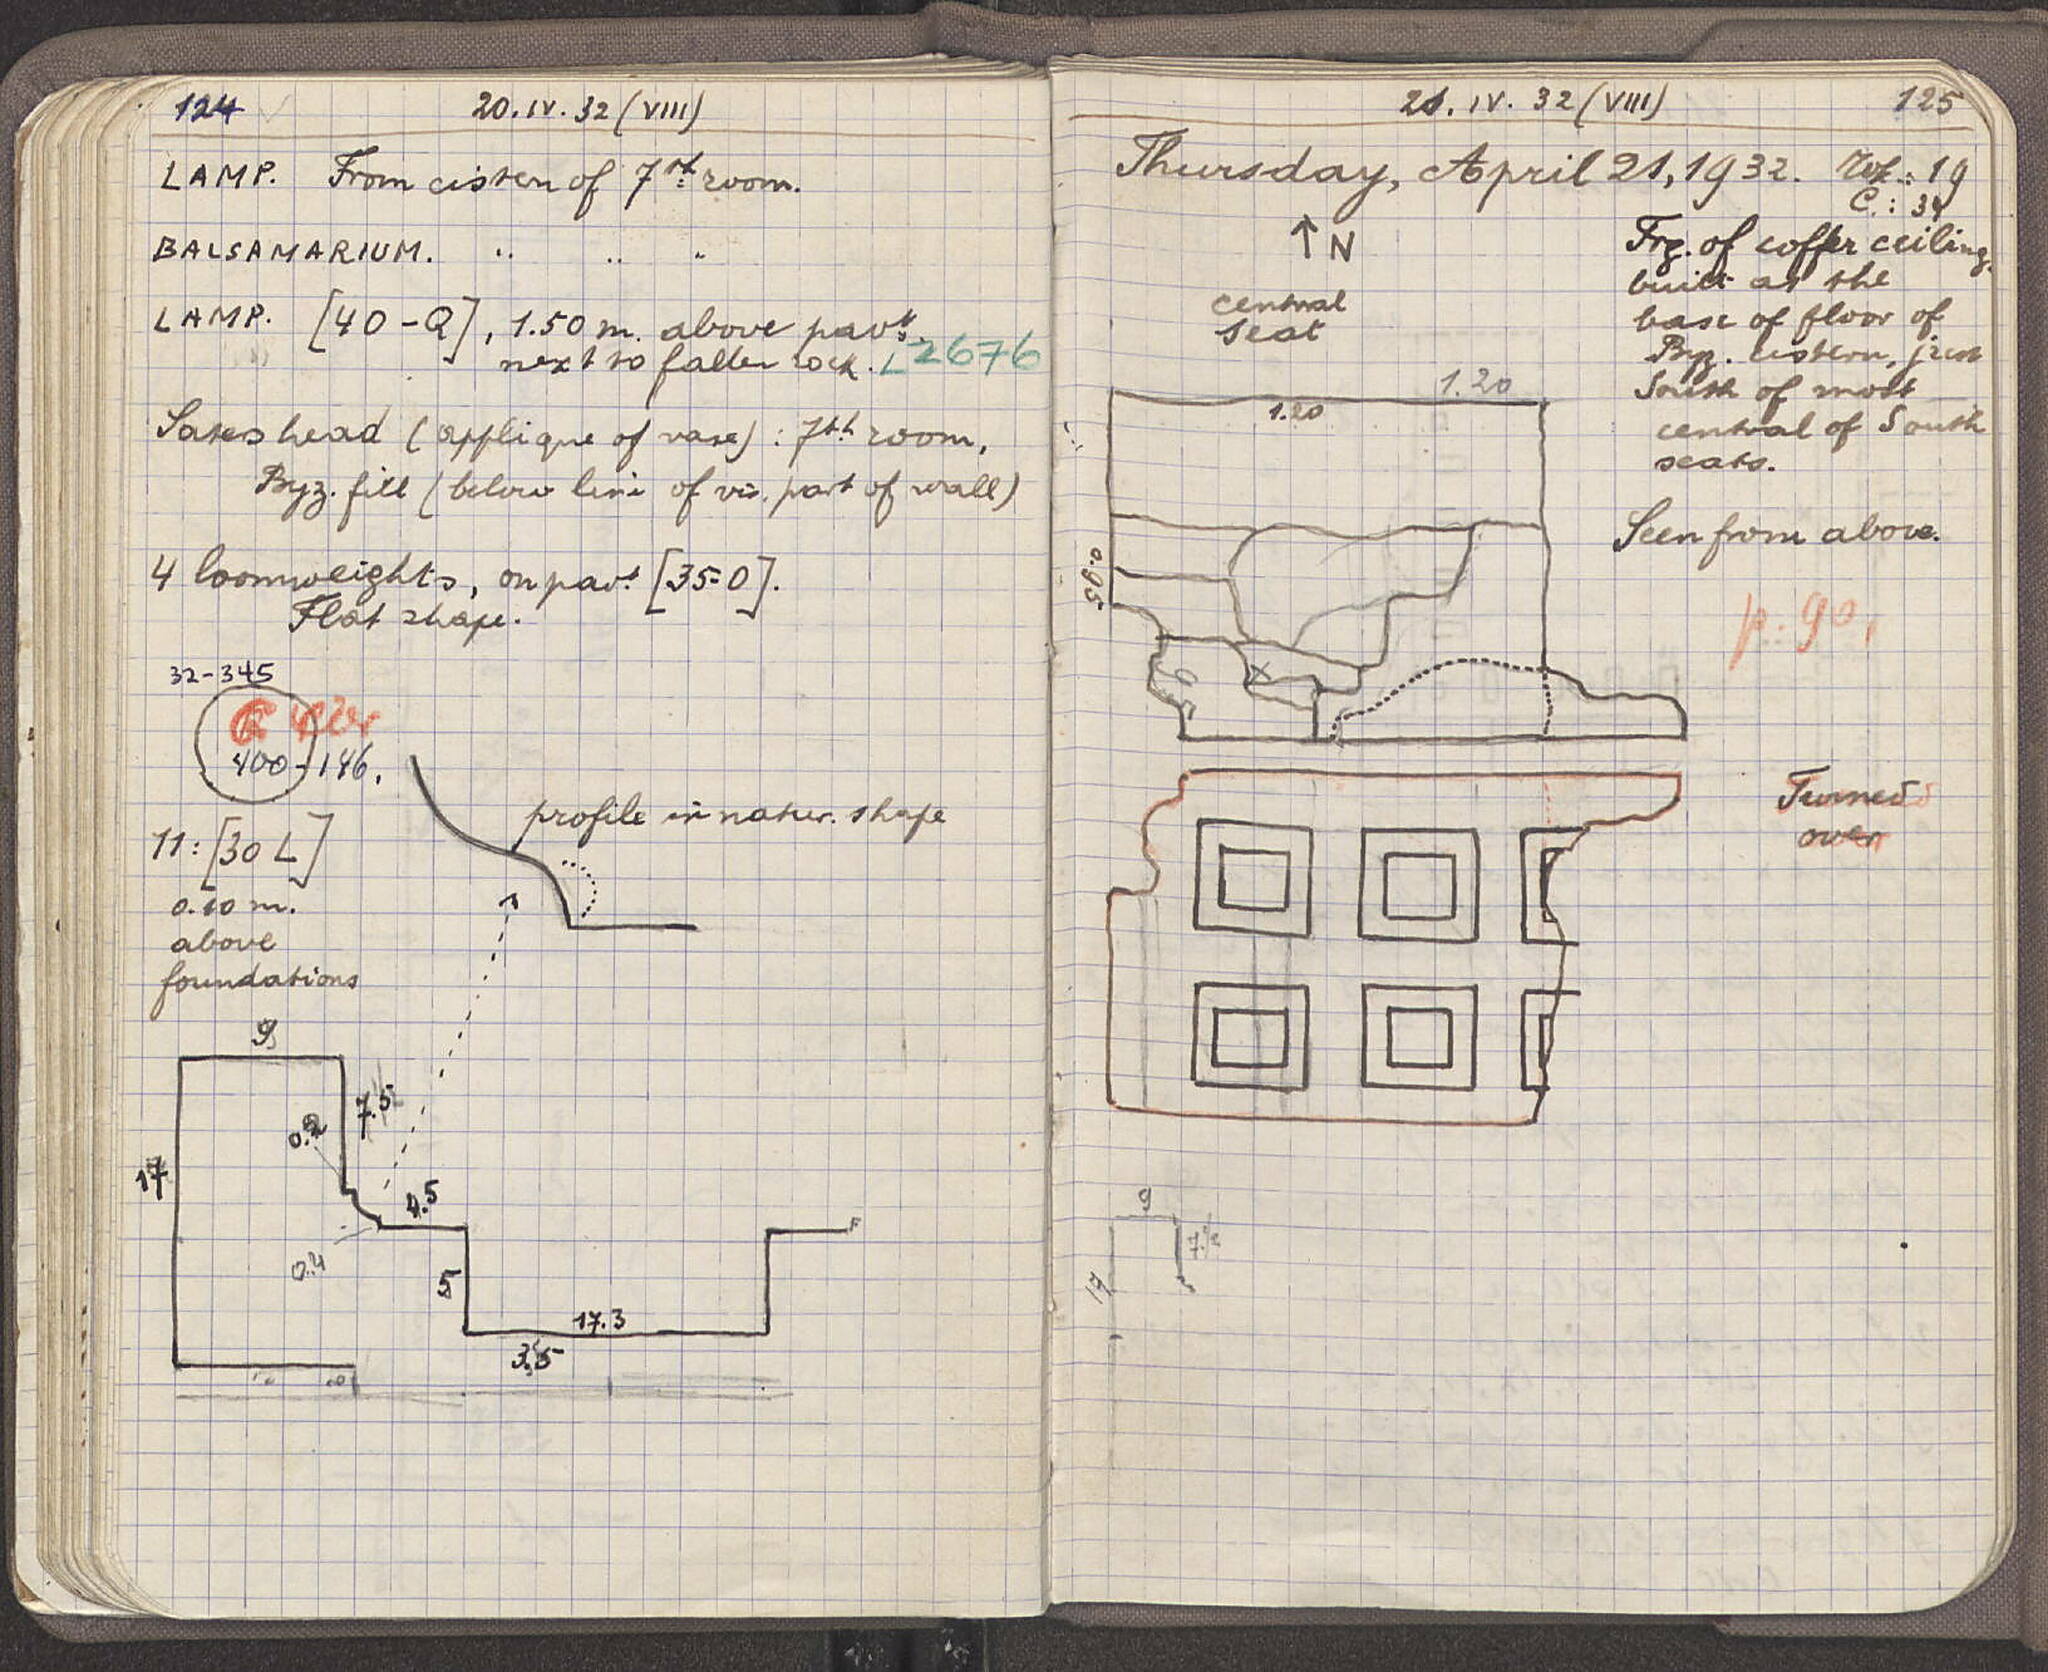 124
20.IV.32 (VIII)
LAMP. From cistern of 7th room.
BALSAMARIUM. " " "
LAMP. [40-Q], 1.50 m. above pavt.
next to fallen rock. L2676
head (applique of vase): 7th room,
Byz. fill (below line of vis. part of wall)
4 loomweights, on pavt. [35-O].
Flat shape.
32-345
400-146.
profile in natur. shape
11: [30 L]
0.10 m.
above
foundations
9
7.5
0.2
17
4.5
0.4
5
17.3
3.5
21.IV.32 (VIII)
125
Thursday, April 21, 1932. : 19
C.: 34
↑ N
central
seat
Frg. of coffer ceiling
built at the
base of floor of
Byz. cistern, just
South of most
central of South
seats.
1.20
1.20
0.95
Seen from above.
p. 90,
X
Turned
over
9
7½
17